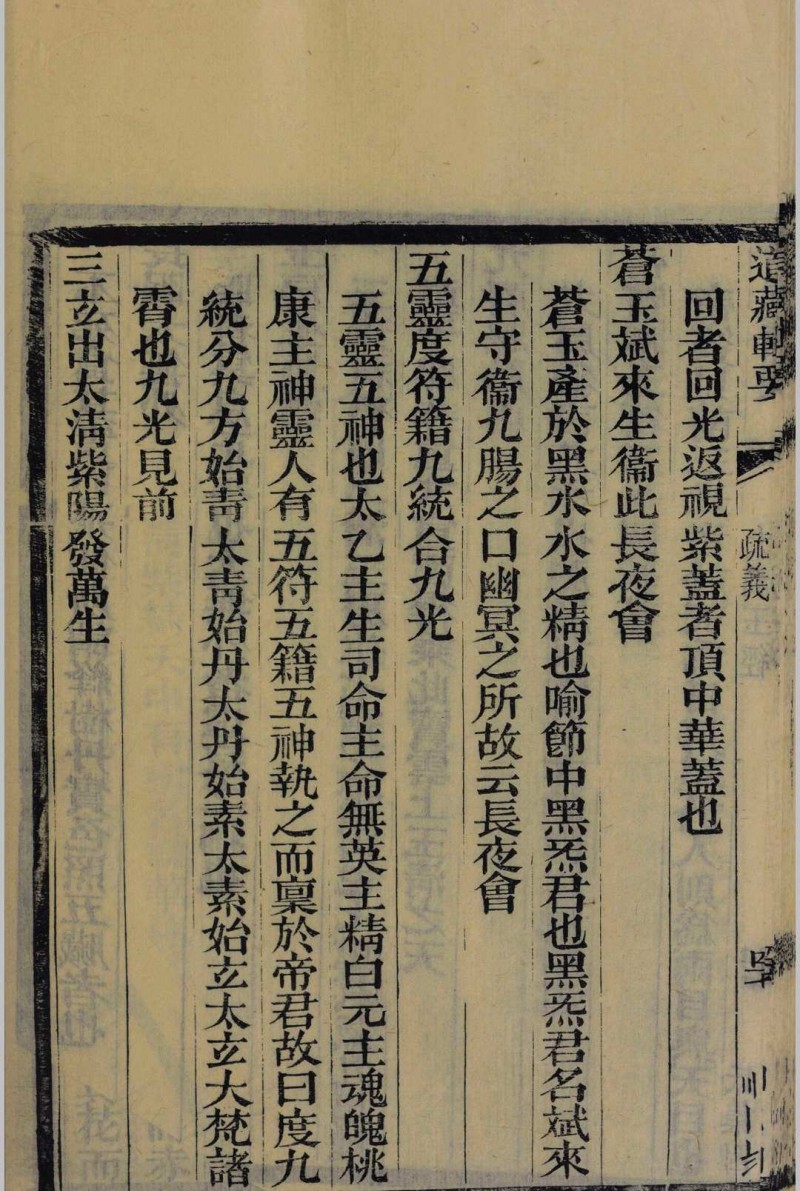 道藏輯要
疏義
回者回光返視紫蓋者頂中華蓋也
蒼玉斌來生衞此長夜會
蒼玉產於黑水水之精也喻節中黑炁君也黑炁君名斌來
生守衞九腸之口幽冥之所故云長夜會
五靈度符籍九統合九光
五靈五神也太乙主生司命主命無英主精白元主魂魄桃
康主神靈人有五符五籍五神執之而稟於帝君故曰度九
統分九方始靑太靑始丹太丹始素太素始玄太玄大梵諸
霄也九光見前
三玄出太淸紫陽發萬生